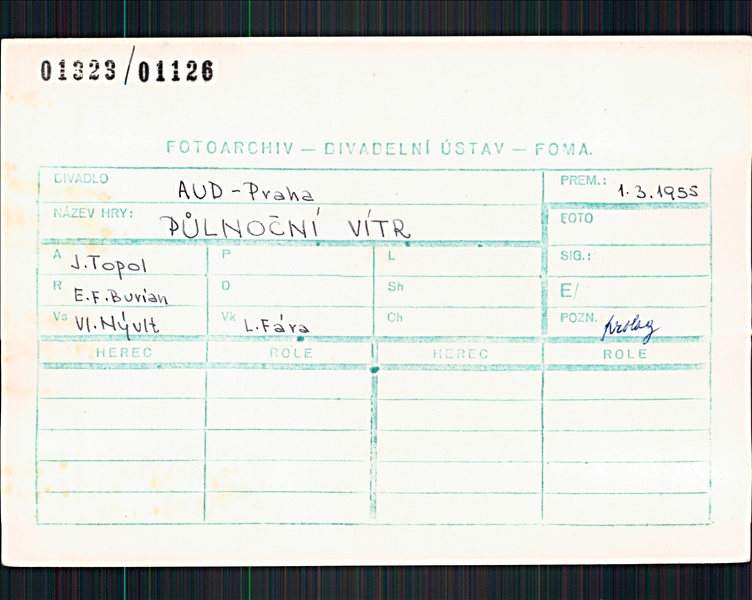 01323/01126
FOTOARCHIV — DIVADELNÍ ÚSTAV — FOMA.
DIVADLO AUD - Praha PREM.: 1.3.1955
NÁZEV HRY: PŮLNOČNÍ VÍTR FOTO
A J. Topol P L SIG.:
R E.F. Burian D Sh E/
Vs Vl. Nývlt Vk L. Fára Ch POZN.
HEREC ROLE HEREC ROLE